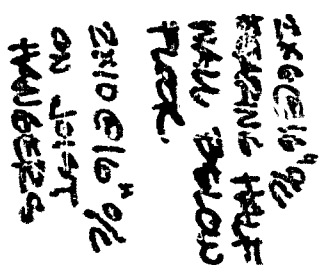 2X6@16" O/C
BEARING HALF
WALL BELOW
FLOOR.
2X10@16" O/C
ON JOIST
HANGERS